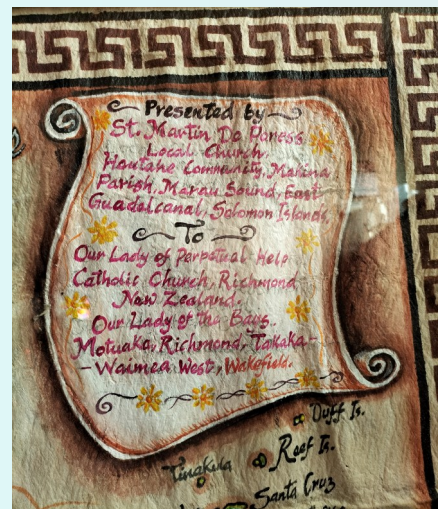 Presented by
St. Martin De Poress
Local Church.
Hautahe Community, Makina
Parish, Marau Sound, East
Guadalcanal, Solomon Islands,
To
Our Lady of Perpetual Help
Catholic Church, Richmond
New Zealand.
Our Lady of the Bays.
Motuaka, Richmond, Takaka-
- Waimea West, Wakefield.
Duff Is.
Reef Is.
Tinakula
Santa Cruz